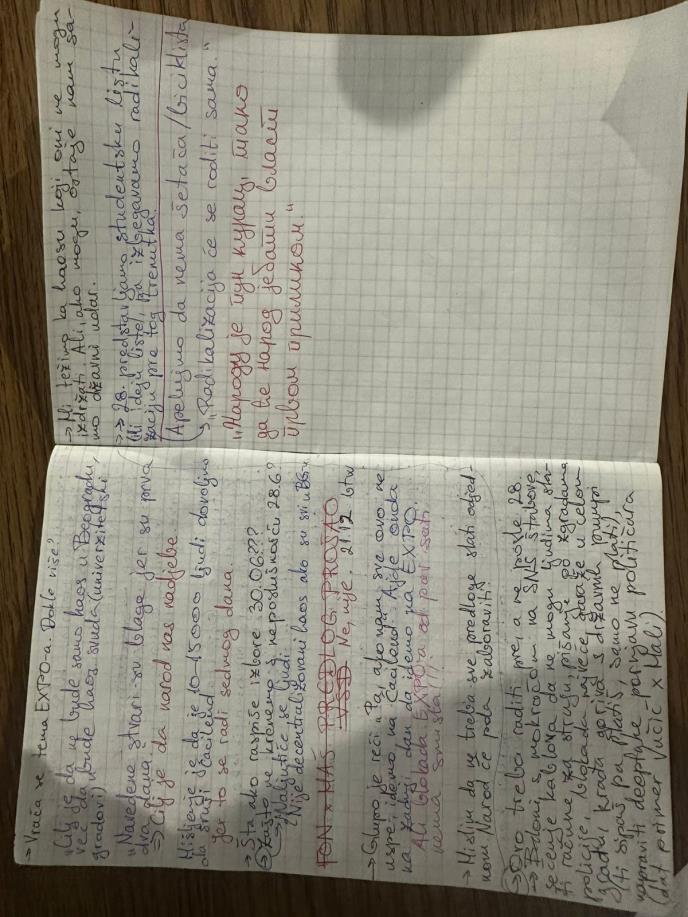 → Vraća se tema EXPO-a. Dokle više?
"Cilj je da ne bude samo haos u Beogradu,
već da bude haos svuda (univerzitetski
gradovi)
"Navedene stvari su blage jer su prva
dva dana."
⇒ Cilj je da narod nas nadjebe
Mišljenje je da je 10-15000 ljudi dovoljno
da sruši Ćacilend
jer to se radi sedmog dana.
→ Šta ako raspiše izbore 30.06???
→ Zašto ne krenemo s neposlušnošću 28.6?
→ "Naljutiće se ljudi"
(Nije decentralizovani haos ako su svi u BGu.
FON x MAŠ PREDLOG PROŠAO
VSD Ne, nije. 2112 btw.
→ Glupo je reći "Pa, ako nam sve ovo ne
uspe, idemo na Ćacilend". Ajde onda
na zadnji dan da idemo na EXPO.
Ali blokada EXPO-a od par sati
nema smisla!
→ Mislim da ne treba sve predloge slati odjed-
nom. Narod će pola zaboraviti
→ Ovo trebo raditi pre, a ne posle 28.
→ Bedoni s mokraćom na SNS štabove,
sečenje kablova da ne mogu ljudima sla-
ti račune za struju, pišanje po zgradama
policije, blokada najveće garaže u celom
gradu, krađa goriva s državnih pumpi
(ti sipaš, pa platiš, samo ne platiš),
napraviti deepfake pornjavu političara
(dat primer Vučić x Mali)
→ Mi težimo ka haosu koji oni ne mogu
izdržati. Ali, ako mogu, ostaje nam sa-
mo državni udar.
→→ 28. predstavljamo studentsku listu
(ili ideju liste), pa izbegavamo radikali-
zaciju pre tog trenutka.
(Apelujmo da nema šetača/biciklista
→ "Radikalizacija će se roditi sama."
"Народу је пун курац, тако
да ће народ јебати власти
првом приликом."